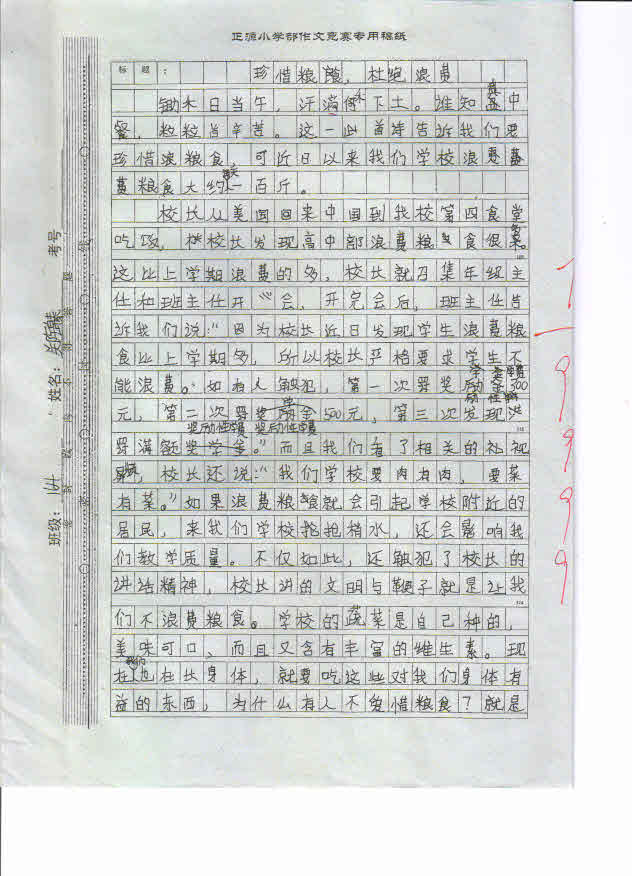 正源小学部作文竞赛专用稿纸
标题: 珍惜粮食，杜绝浪费
锄木日当午，汗滴何木下土。谁知盘中
餐，粒粒皆辛苦。这一首诗告诉我们要
珍惜浪粮食，可近日以来我们学校浪费
粮食大约一百斤。
校长从美国回来中国到我校第四食堂
吃饭，校长发现高中部浪费粮食很多。
这比上学期浪费的多，校长就召集年级主
任和班主任开会，开完会后，班主任告
诉我们说：“因为校长近日发现学生浪费粮
食比上学期多，所以校长严格要求学生不
能浪费。如有人触犯，第一次罚奖学金300
元，第二次罚奖学金500元，第三次发现
罚满额奖学金。”而且我们看了相关的
，校长还说：“我们学校要肉有肉，要菜
有菜。”如果浪费粮食就会引起学校附近的
居民，来我们学校抢水，还会影响我
们教学质量。不仅如此，还触犯了校长的
讲话精神，校长讲的文明与鞭子就是让我
们不浪费粮食。学校的蔬菜是自己种的，
美味可口，而且又含有丰富的维生素。现
在我们在长身体，就要吃这些对我们身体有
益的东西，为什么有人不爱惜粮食？就是
班级： 164
姓名：
考号